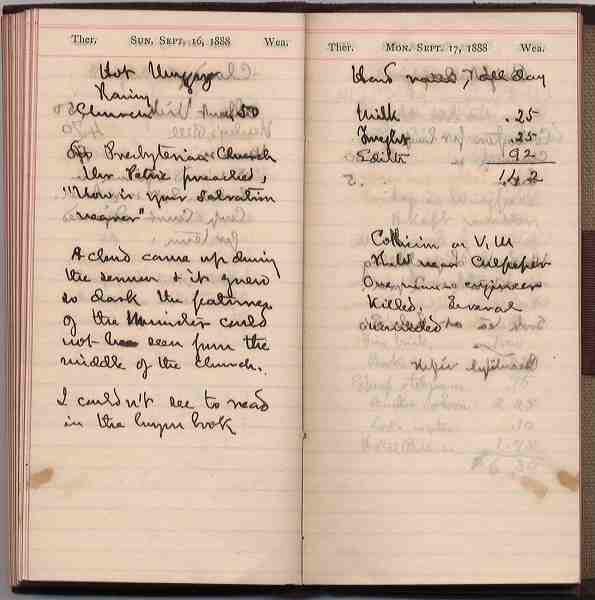 Ther. SUN. SEPT. 16, 1888 Wea.
Hot
Rainy
Church 50
Presbyterian Church
Mr Petrie preached,
"Now is your salvation
nearer"
A cloud came up during
the sermon & it grew
so dark the features
of the Minister could
not be seen from the
middle of the church.
I couldn't see to read
in the hymn book
Ther. MON. SEPT. 17, 1888 Wea.
Hard all day
Milk .25
Freight .25
Edith 92
1.42
Collision on V. M
near Culpeper
One man engineer
Killed. Several